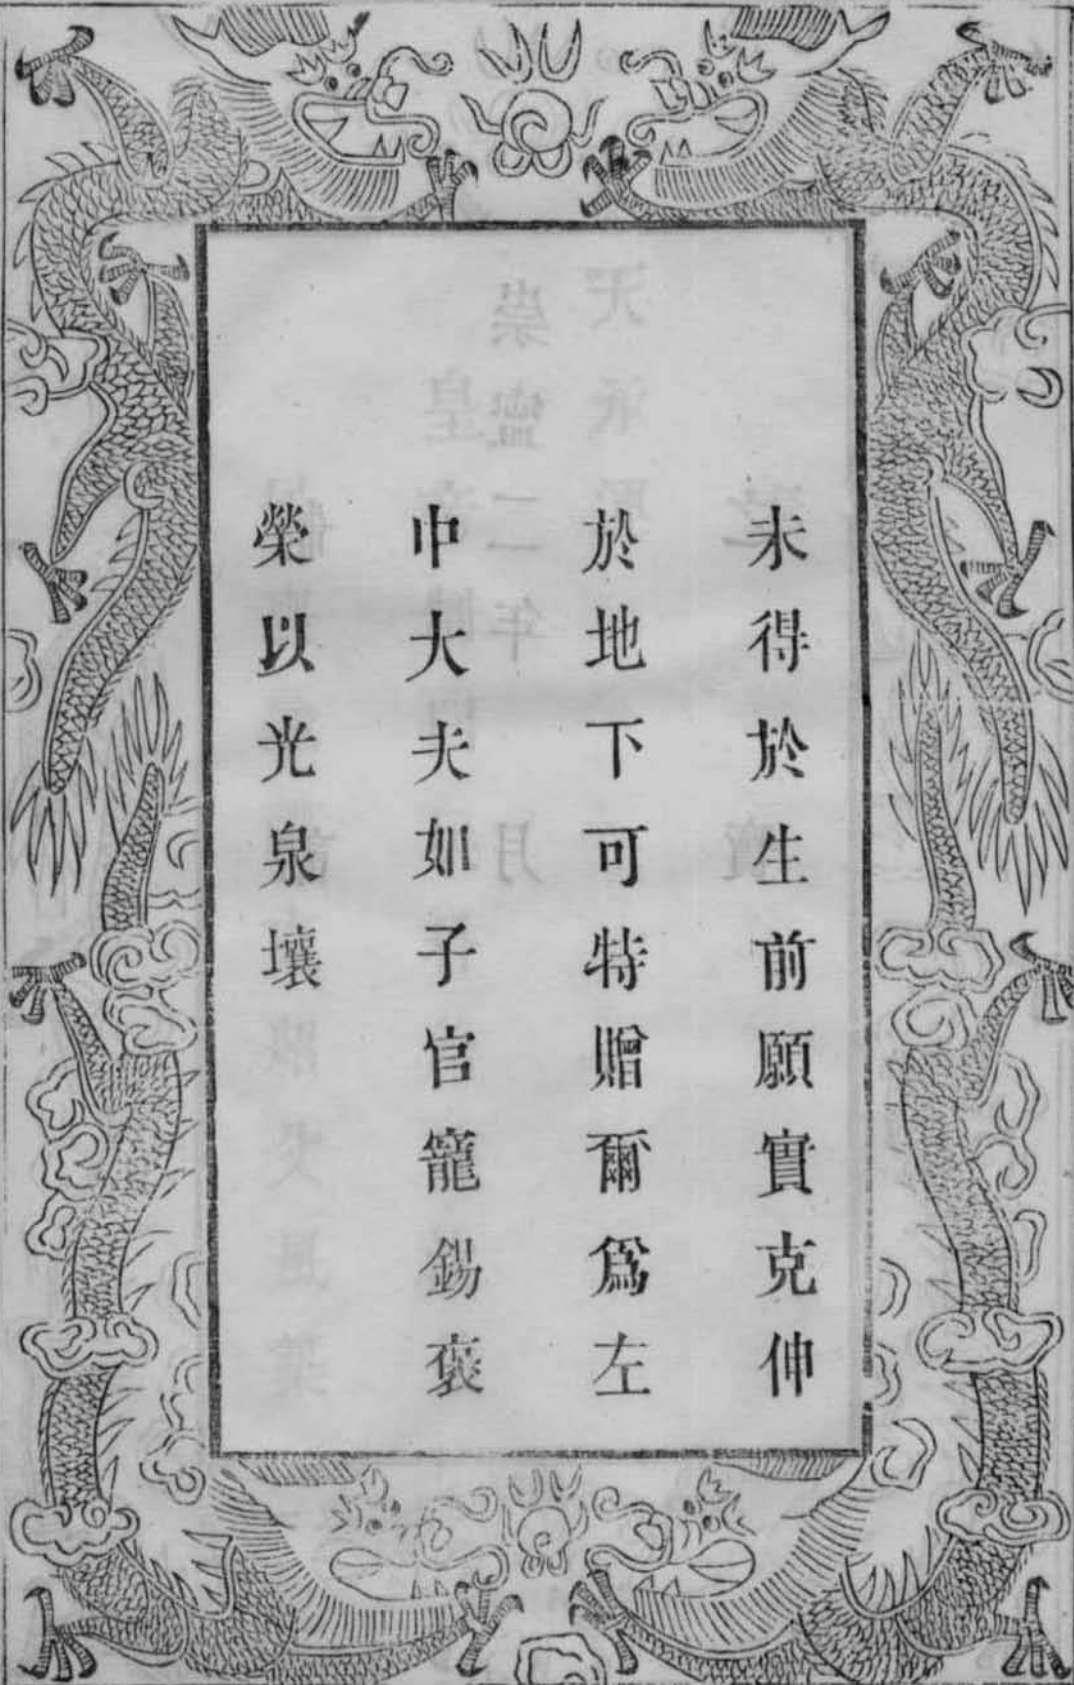 未得於生前願實克伸
於地下可特贈爾爲左
中大夫如子官寵錫褒
榮以光泉壤